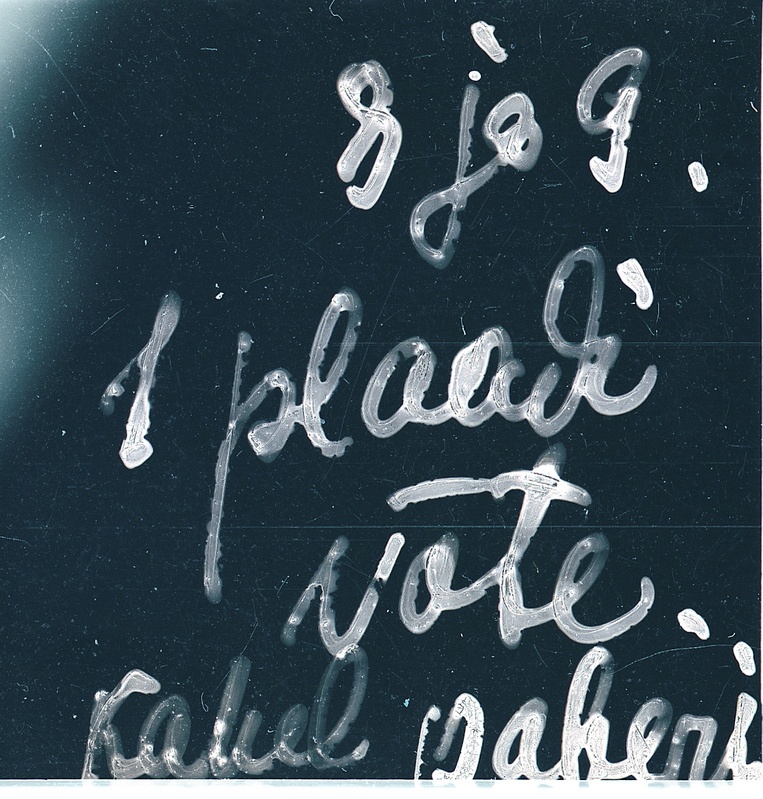 8 ja 9.
1 plaadi
võte.
Kahel paberi